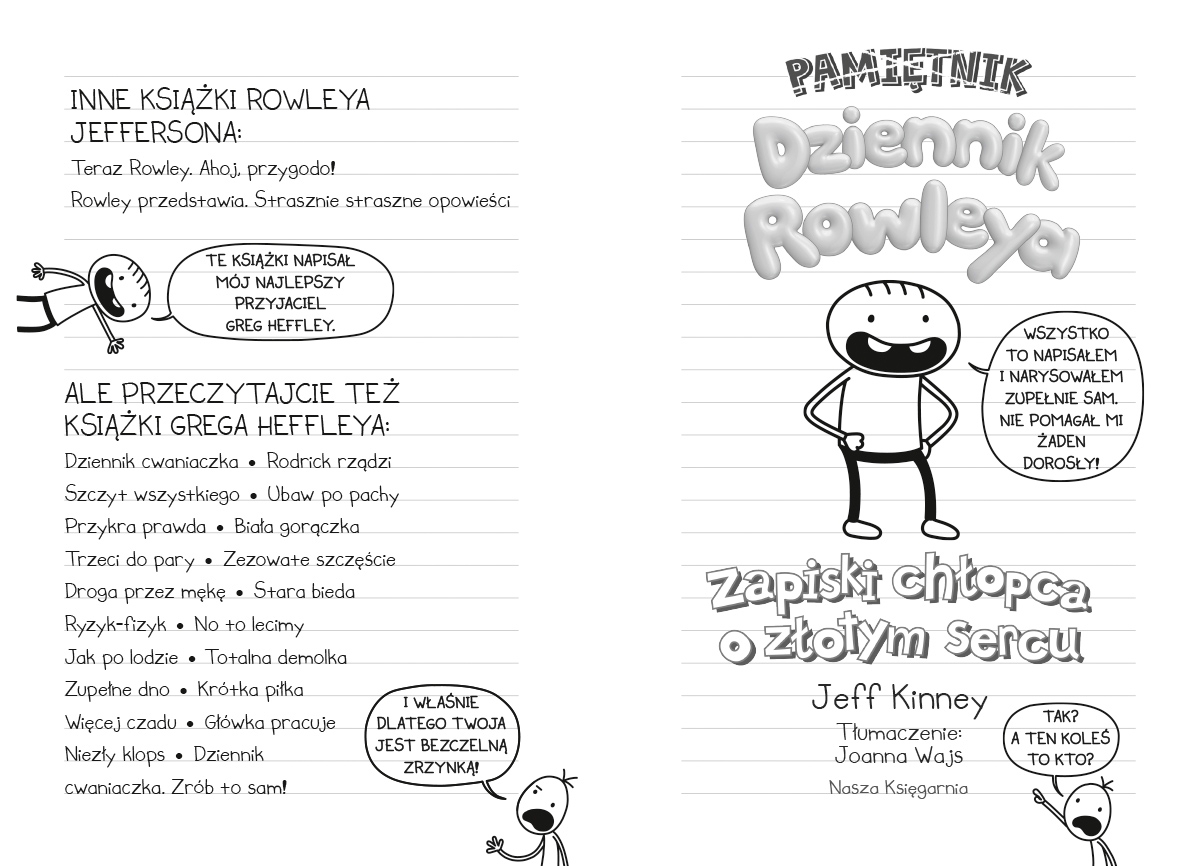 INNE KSIĄŻKI ROWLEYA
JEFFERSONA:
Teraz Rowley. Ahoj, przygodo!
Rowley przedstawia. Strasznie straszne opowieści
TE KSIĄŻKI NAPISAŁ
MÓJ NAJLEPSZY
PRZYJACIEL
GREG HEFFLEY.
ALE PRZECZYTAJCIE TEŻ
KSIĄŻKI GREGA HEFFLEYA:
Dziennik cwaniaczka • Rodrick rządzi
Szczyt wszystkiego • Ubaw po pachy
Przykra prawda • Biała gorączka
Trzeci do pary • Zezowate szczęście
Droga przez mękę • Stara bieda
Ryzyk-fizyk • No to lecimy
Jak po lodzie • Totalna demolka
Zupełne dno • Krótka piłka
Więcej czadu • Główka pracuje
Niezły klops • Dziennik
cwaniaczka. Zrób to sam!
I WŁAŚNIE
DLATEGO TWOJA
JEST BEZCZELNĄ
ZRZYNKĄ!
PAMIĘTNIK
Dziennik
Rowleya
WSZYSTKO
TO NAPISAŁEM
I NARYSOWAŁEM
ZUPEŁNIE SAM.
NIE POMAGAŁ MI
ŻADEN
DOROSŁY!
Zapiski chłopca
o złotym sercu
Jeff Kinney
Tłumaczenie:
Joanna Wajs
Nasza Księgarnia
TAK?
A TEN KOLEŚ
TO KTO?